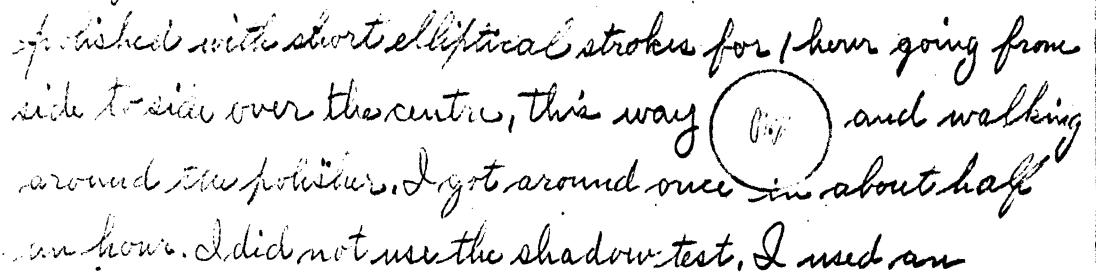 polished with short elliptical strokes for 1 hour going from
side to side over the centre, this way and walking
around the polisher. I got around once in about half
an hour. I did not use the shadow test, I used an